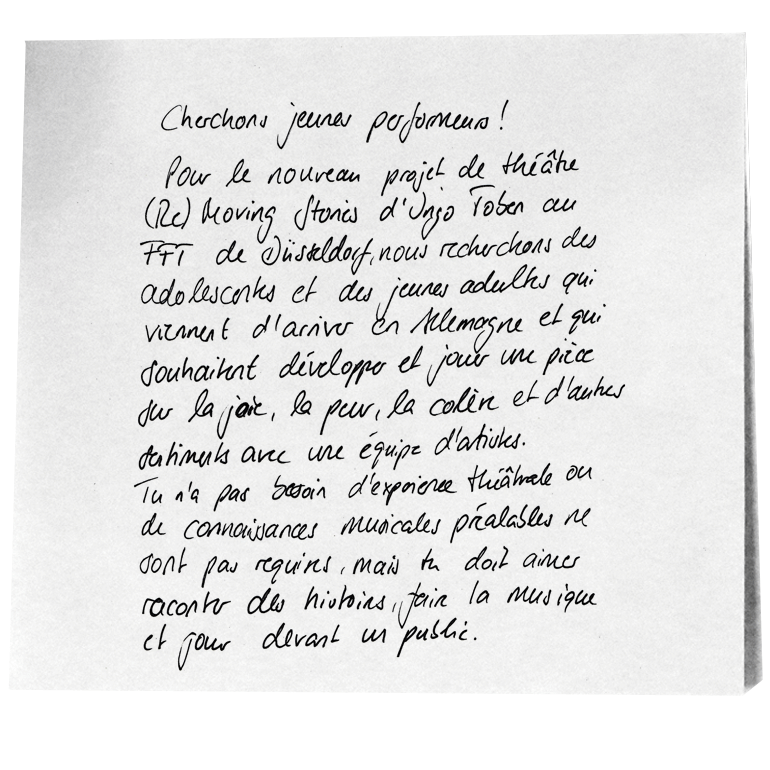 Cherchons jeunes performeurs!
Pour le nouveau projet de théâtre
(Re) Moving Stories d'Ingo Toben au
FFT de Düsseldorf, nous recherchons des
adolescents et des jeunes adultes qui
viennent d'arriver en Allemagne et qui
souhaitent développer et jouer une pièce
sur la joie, la peur, la colère et d'autres
sentiments avec une équipe d'artistes.
Tu n'a pas besoin d'expérience théâtrale ou
de connaissances musicales préalables ne
sont pas requires, mais tu doit aimer
raconter des histoires, faire la musique
et jouer devant un public.